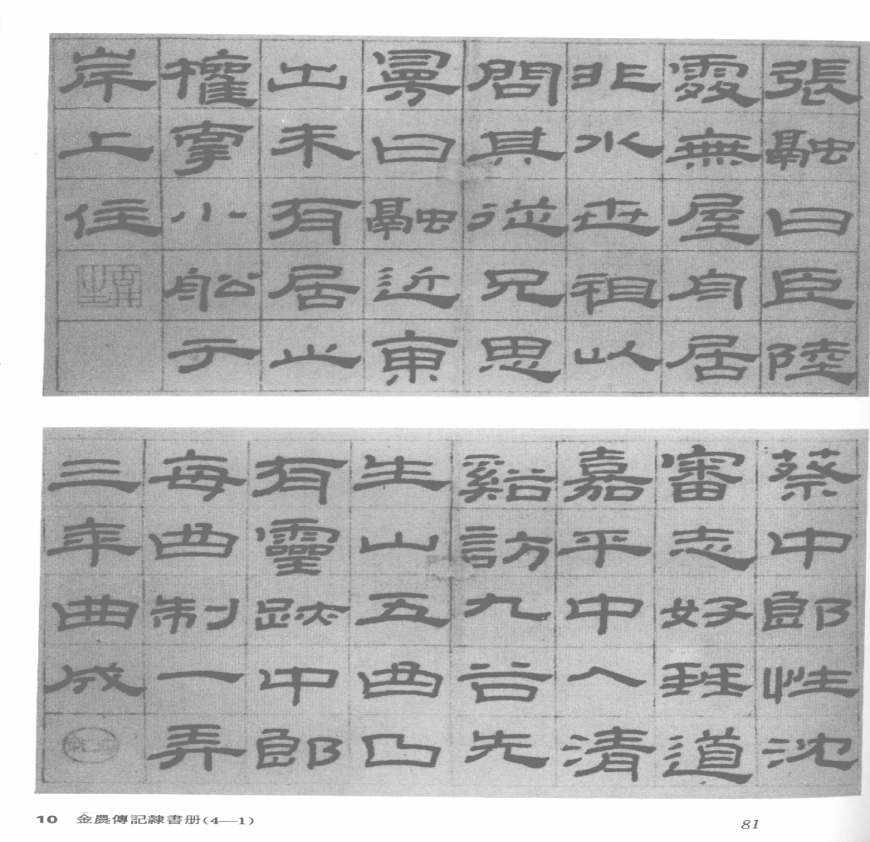 張融曰臣陸
處無屋舟居
非水世祖以
問其從兄思
曼曰融近東
出未有居止
權牽小船于
岸上住
蔡中郎性沈
審志好琴道
嘉平中入清
谿訪九谷先
生山五曲曲
有靈跡中郎
每曲制一弄
三年曲成
10 金農傳記隸書册(4—1)
81